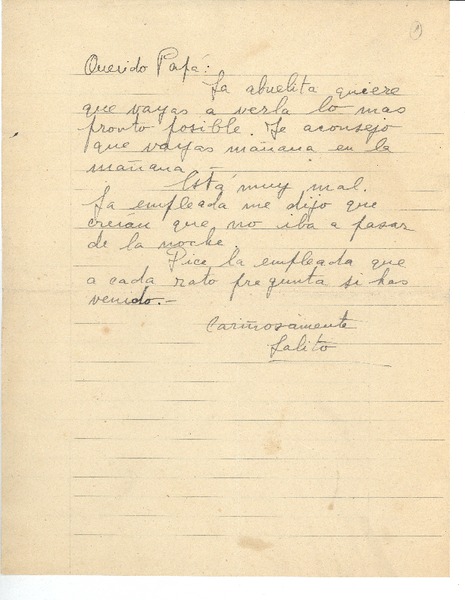 Querido Papá:
La abuelita quiere
que vayas a verla lo mas
pronto posible. Te aconsejo
que vayas mañana en la
mañana
Está muy mal.
La empleada me dijo que
creían que no iba a pasar
de la noche.
Dice la empleada que
a cada rato pregunta si has
venido.-
Cariñosamente
Lalito